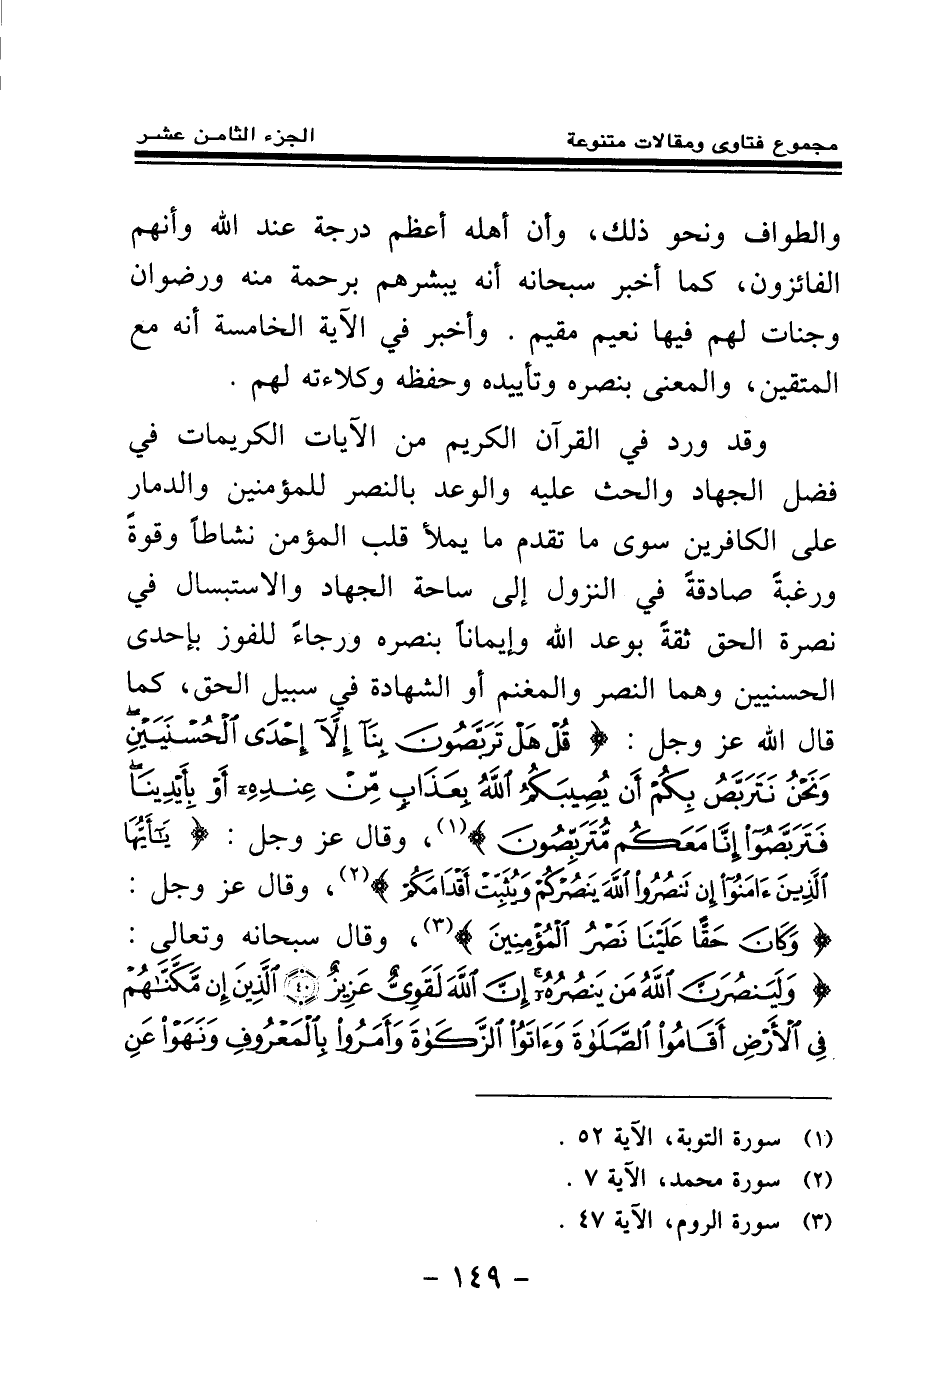 مجموع فتاوى ومقالات متنوعة الجزء الثامن عشر
والطواف ونحو ذلك، وأن أهله أعظم درجة عند الله وأنهم
الفائزون، كما أخبر سبحانه أنه يبشرهم برحمة منه ورضوان
وجنات لهم فيها نعيم مقيم . وأخبر في الآية الخامسة أنه مع
المتقين، والمعنى بنصره وتأييده وحفظه وكلاءته لهم .
وقد ورد في القرآن الكريم من الآيات الكريمات في
فضل الجهاد والحث عليه والوعد بالنصر للمؤمنين والدمار
على الكافرين سوى ما تقدم ما يملأ قلب المؤمن نشاطاً وقوةً
ورغبةً صادقةً في النزول إلى ساحة الجهاد والاستبسال في
نصرة الحق ثقةً بوعد الله وإيماناً بنصره ورجاءً للفوز بإحدى
الحسنيين وهما النصر والمغنم أو الشهادة في سبيل الحق، كما
قال الله عز وجل : ﴿ قُلْ هَلْ تَرَبَّصُونَ بِنَآ إِلَّآ إِحْدَى ٱلْحُسْنَيَيْنِ ۖ
وَنَحْنُ نَتَرَبَّصُ بِكُمْ أَن يُصِيبَكُمُ ٱللَّهُ بِعَذَابٍ مِّنْ عِندِهِۦٓ أَوْ بِأَيْدِينَا ۖ
فَتَرَبَّصُوٓا۟ إِنَّا مَعَكُم مُّتَرَبِّصُونَ ﴾(١)، وقال عز وجل : ﴿ يَـٰٓأَيُّهَا
ٱلَّذِينَ ءَامَنُوٓا۟ إِن تَنصُرُوا۟ ٱللَّهَ يَنصُرْكُمْ وَيُثَبِّتْ أَقْدَامَكُمْ ﴾(٢)، وقال عز وجل :
﴿ وَكَانَ حَقًّا عَلَيْنَا نَصْرُ ٱلْمُؤْمِنِينَ ﴾(٣)، وقال سبحانه وتعالى :
﴿ وَلَيَنصُرَنَّ ٱللَّهُ مَن يَنصُرُهُۥٓ ۗ إِنَّ ٱللَّهَ لَقَوِىٌّ عَزِيزٌ ٤٠ ٱلَّذِينَ إِن مَّكَّنَّـٰهُمْ
فِى ٱلْأَرْضِ أَقَامُوا۟ ٱلصَّلَوٰةَ وَءَاتَوُا۟ ٱلزَّكَوٰةَ وَأَمَرُوا۟ بِٱلْمَعْرُوفِ وَنَهَوْا۟ عَنِ
(١) سورة التوبة، الآية ٥٢ .
(٢) سورة محمد، الآية ٧ .
(٣) سورة الروم، الآية ٤٧ .
- ١٤٩ -